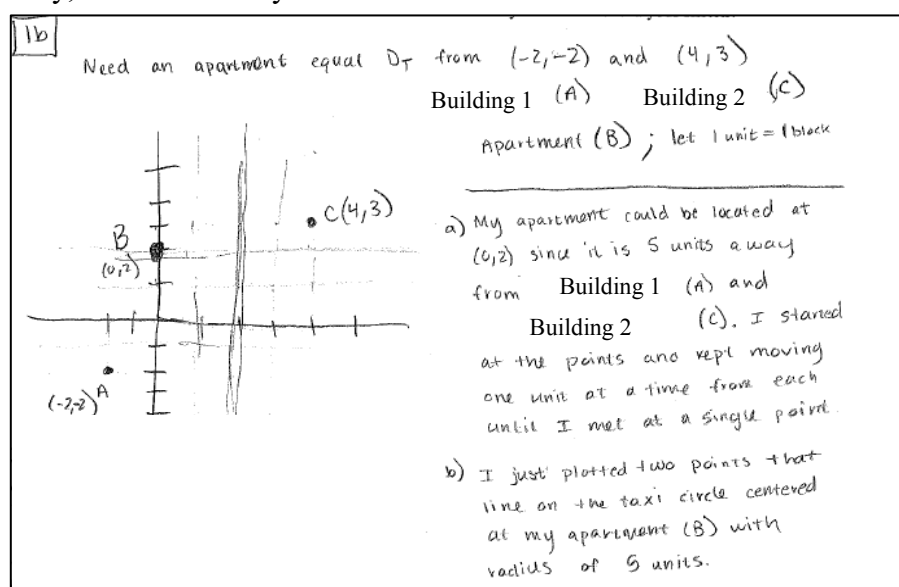 1b
Need an apartment equal D_T from (-2,-2) and (4,3)
Building 1 (A) Building 2 (C)
Apartment (B) ; let 1 unit = 1 block
C(4,3)
B
(0,2)
(-2,-2) A
a) My apartment could be located at
(0,2) since it is 5 units away
from Building 1 (A) and
Building 2 (C). I started
at the points and kept moving
one unit at a time from each
until I met at a single point.
b) I just plotted two points that
line on the taxi circle centered
at my apartment (B) with
radius of 5 units.